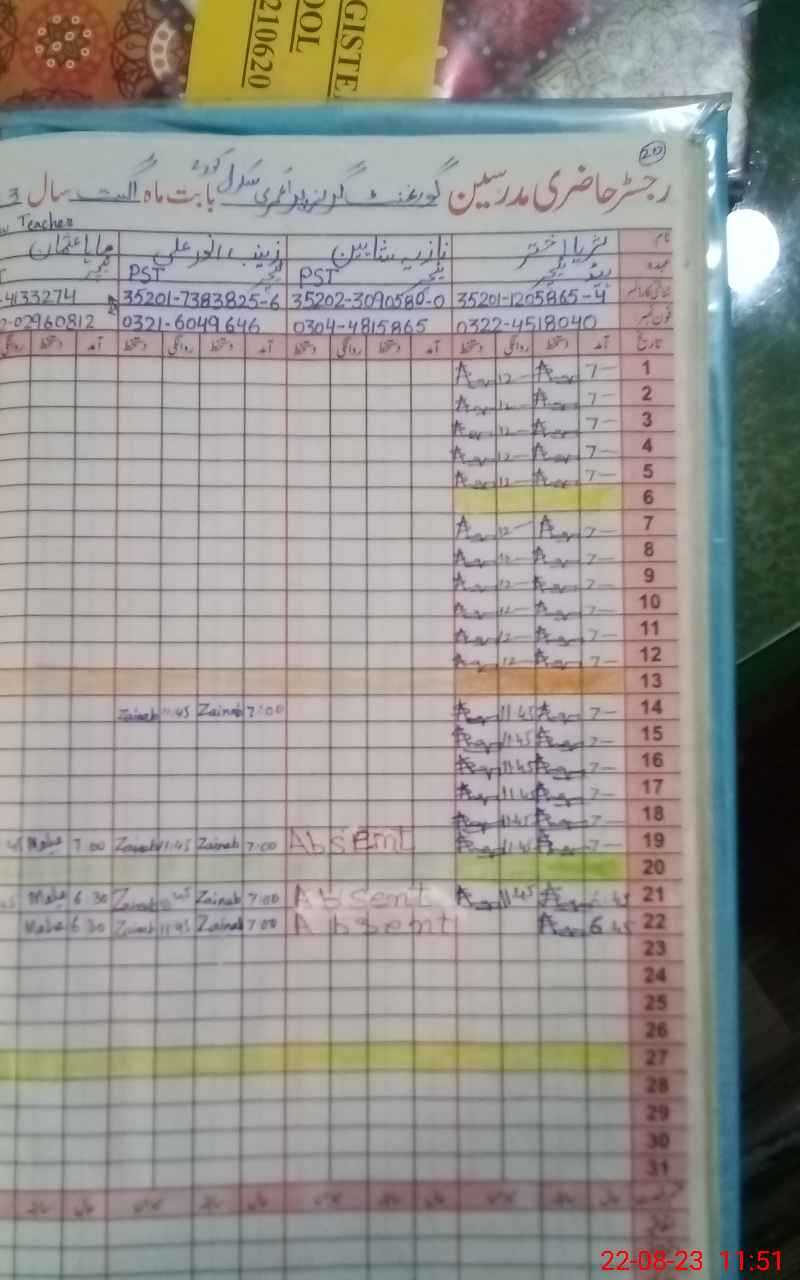 GISTE
OOL
210620
20
رجسٹر حاضری مدرسین گورنمنٹ گرلز پرائمری سکول بابت ماہ اگست سال 3
Teacher
نام ثریا اختر نازیہ شاہین زینب انور علی ماہا عثمان
عہدہ ہیڈ ٹیچر PST ٹیچر PST ٹیچر
35201-1205865-4 35202-3090580-0 35201-7383825-6 -4133274
فون نمبر 0322-4518040 0304-4815865 0321-6049646 2-02960812
تاریخ آمد دستخط روانگی دستخط آمد دستخط روانگی دستخط آمد دستخط روانگی دستخط آمد دستخط روانگی
1 7- 12-
2 7- 12-
3 7- 12-
4 7- 12-
5 7- 12-
6
7 7- 12-
8 7- 12-
9 7- 12-
10 7- 12-
11 7- 12-
12 7- 12-
13
14 7- 11 45 7:00 Zainab 11:45 Zainab
15 7- 11 45
16 7- 11 45
17 7- 11 45
18 7- 11 45
19 7- 11 45 Absent 7:00 Zainab 11:45 Zainab 7 00 Maha 45
20
21 6 45 11 45 Absent 7:00 Zainab 45 Zainab 6 30 Maha 45
22 6 45 Absent 7:00 Zainab 11 45 Zainab 6 30 Maha
23
24
25
26
27
28
29
30
31
22-08-23 11:51